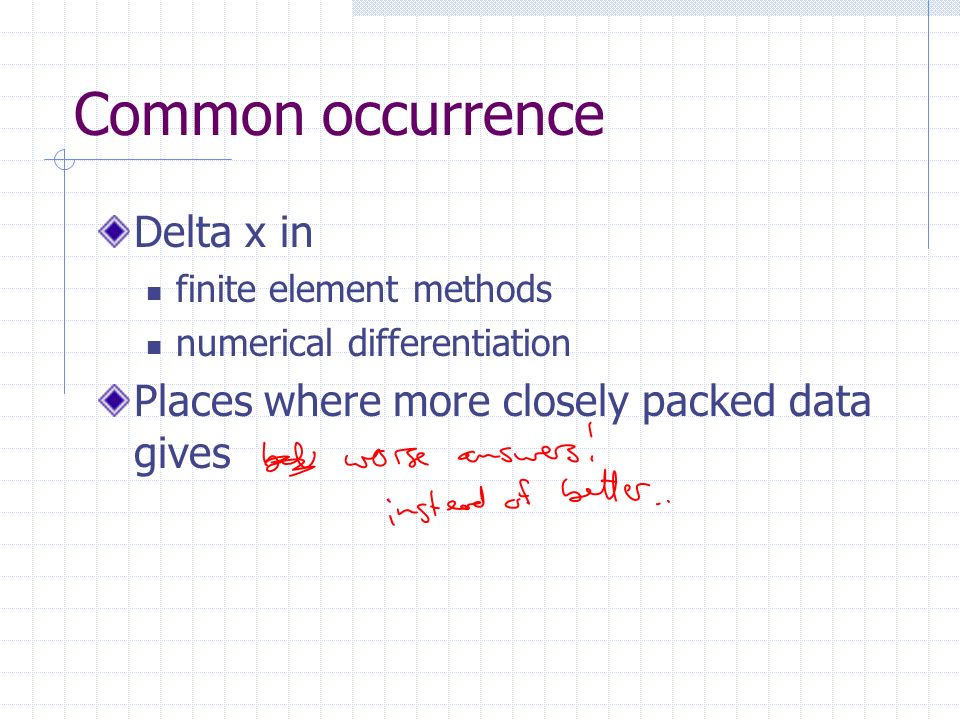 Common occurrence
Delta x in
finite element methods
numerical differentiation
Places where more closely packed data
gives worse answers!
instead of better..